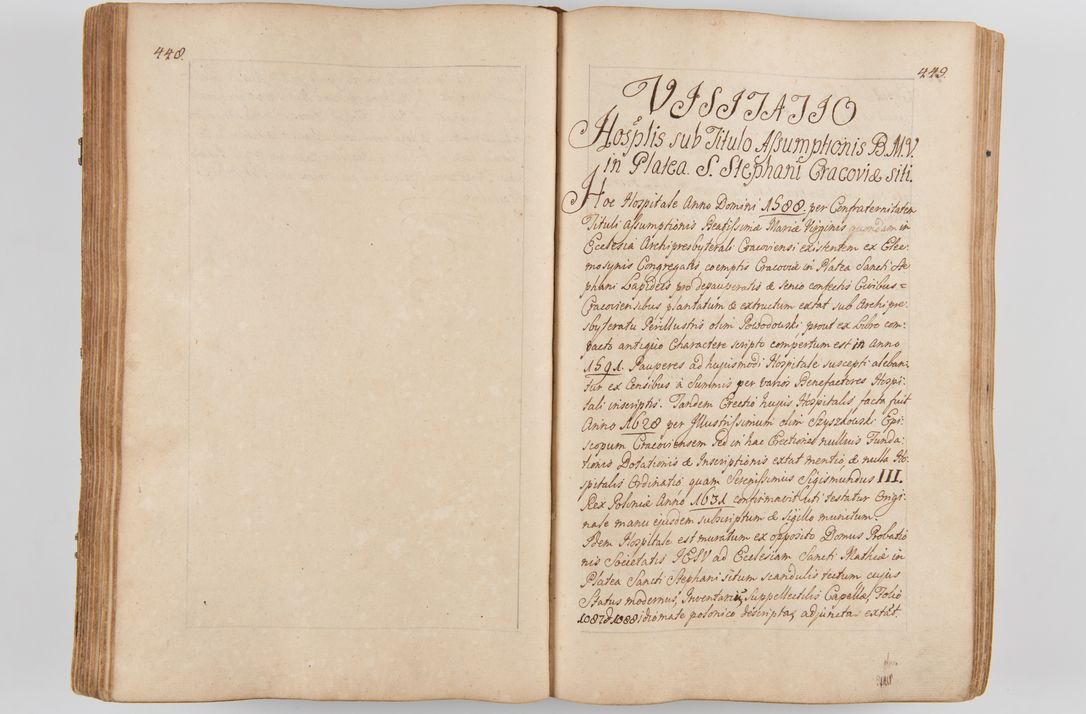 448.
449.
VISITATIO
Hosplis sub Titulo Assumptionis B.M.V.
in Platea S. Stephani Cracoviæ siti.
Hoc Hospitale Anno Domini 1588 per Confraternitatem
Tituli Assumptionis Beatissimæ Mariæ Virginis quondam in
Ecclesia Archipresbyterali Cracoviensi existentem ex Elee-
mosynis Congregatis coemptis Cracoviæ in Platea Sancti Ste
phani Lapideis pro depauperatis & senio confectis Civibus =
Cracoviensibus plantatum & extructum extat sub Archipre-
sbyteratu Perillustris olim Powodowski prout ex Libro com-
pacto antiquo Charactere scripto compertum est in Anno
1591. Pauperes ad hujusmodi Hospitale suscepti aleban-
tur ex Censibus à Summis per varios Benefactores Hospi-
tali inscriptis. Tandem Erectio hujus Hospitalis facta fuit
Anno 1628 per Illustrissimum olim Szyszkowski Epi-
scopum Cracoviensem sed in hac Erectione nullius Funda-
tionis Dotationis & Inscriptionis extat mentio, & nulla Ho-
spitalis Ordinatio quam Serenissimus Sigismundus III.
Rex Poloniæ Anno 1631 confirmavit uti testatur Origi-
nale manu ejusdem subscriptum & sigillo munitum.
Idem Hospitale est muratum ex opposito Domus Probatio
nis Societatis IESV ad Ecclesiam Sancti Mathiæ in
Platea Sancti Stephani situm scandulis tectum cujus
Status modernus, Inventaria, Suppellectilis Capellæ, Folio
1087 d. 1088 idiomate polonico descripta, adjuncta extat.